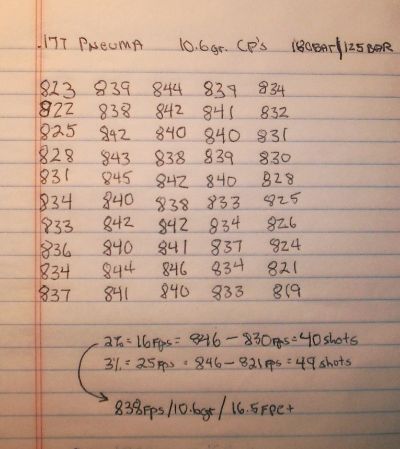 .177 PNEUMA 10.6gr. CP's 180BAR/125BAR
823 839 844 839 834
822 838 842 841 832
825 842 840 840 831
828 843 838 839 830
831 845 842 840 828
834 840 838 833 825
833 842 842 834 826
836 840 841 837 824
834 844 846 834 821
837 841 840 833 819
2% = 16Fps = 846 - 830Fps = 40 shots
3% = 25Fps = 846 - 821Fps = 49 shots
838Fps/10.6gr/16.5FPE+